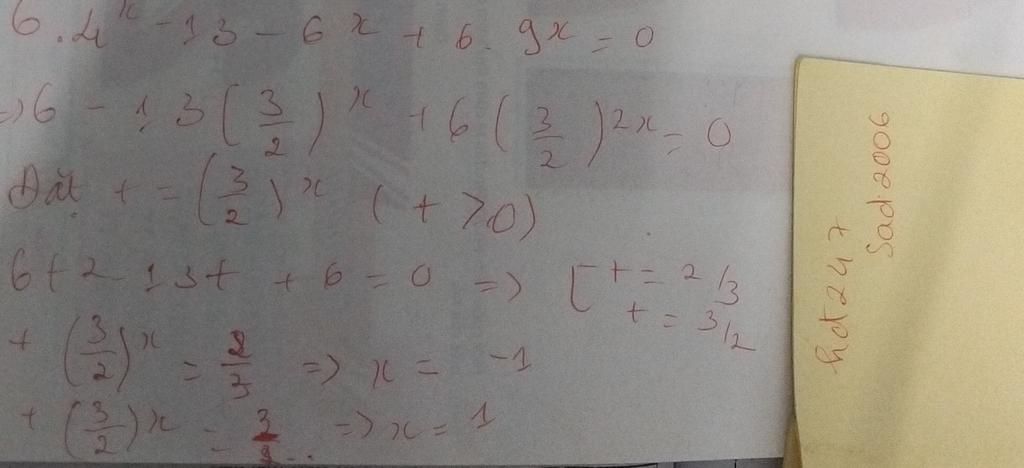 6.4^x - 13 - 6^x + 6. 9^x = 0
=> 6 - 13 (3/2)^x + 6 (3/2)^2x = 0
Đặt t = (3/2)^x (t > 0)
6t2 - 13t + 6 = 0 => [ t = 2/3
t = 3/2
+ (3/2)^x = 2/3 => x = -1
+ (3/2)^x = 3/2 => x = 1
hdt247
Sadi2006